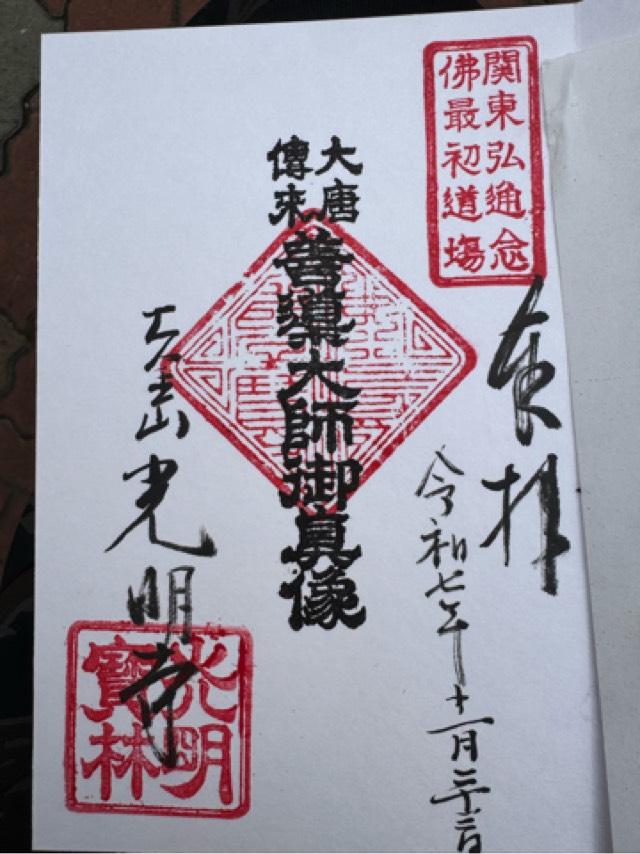 関東弘通念
佛最初道塲
奉拝
令和七年十一月二十二日
大唐
傳来
善導大師御真像
天照山光明寺
光明
寶林